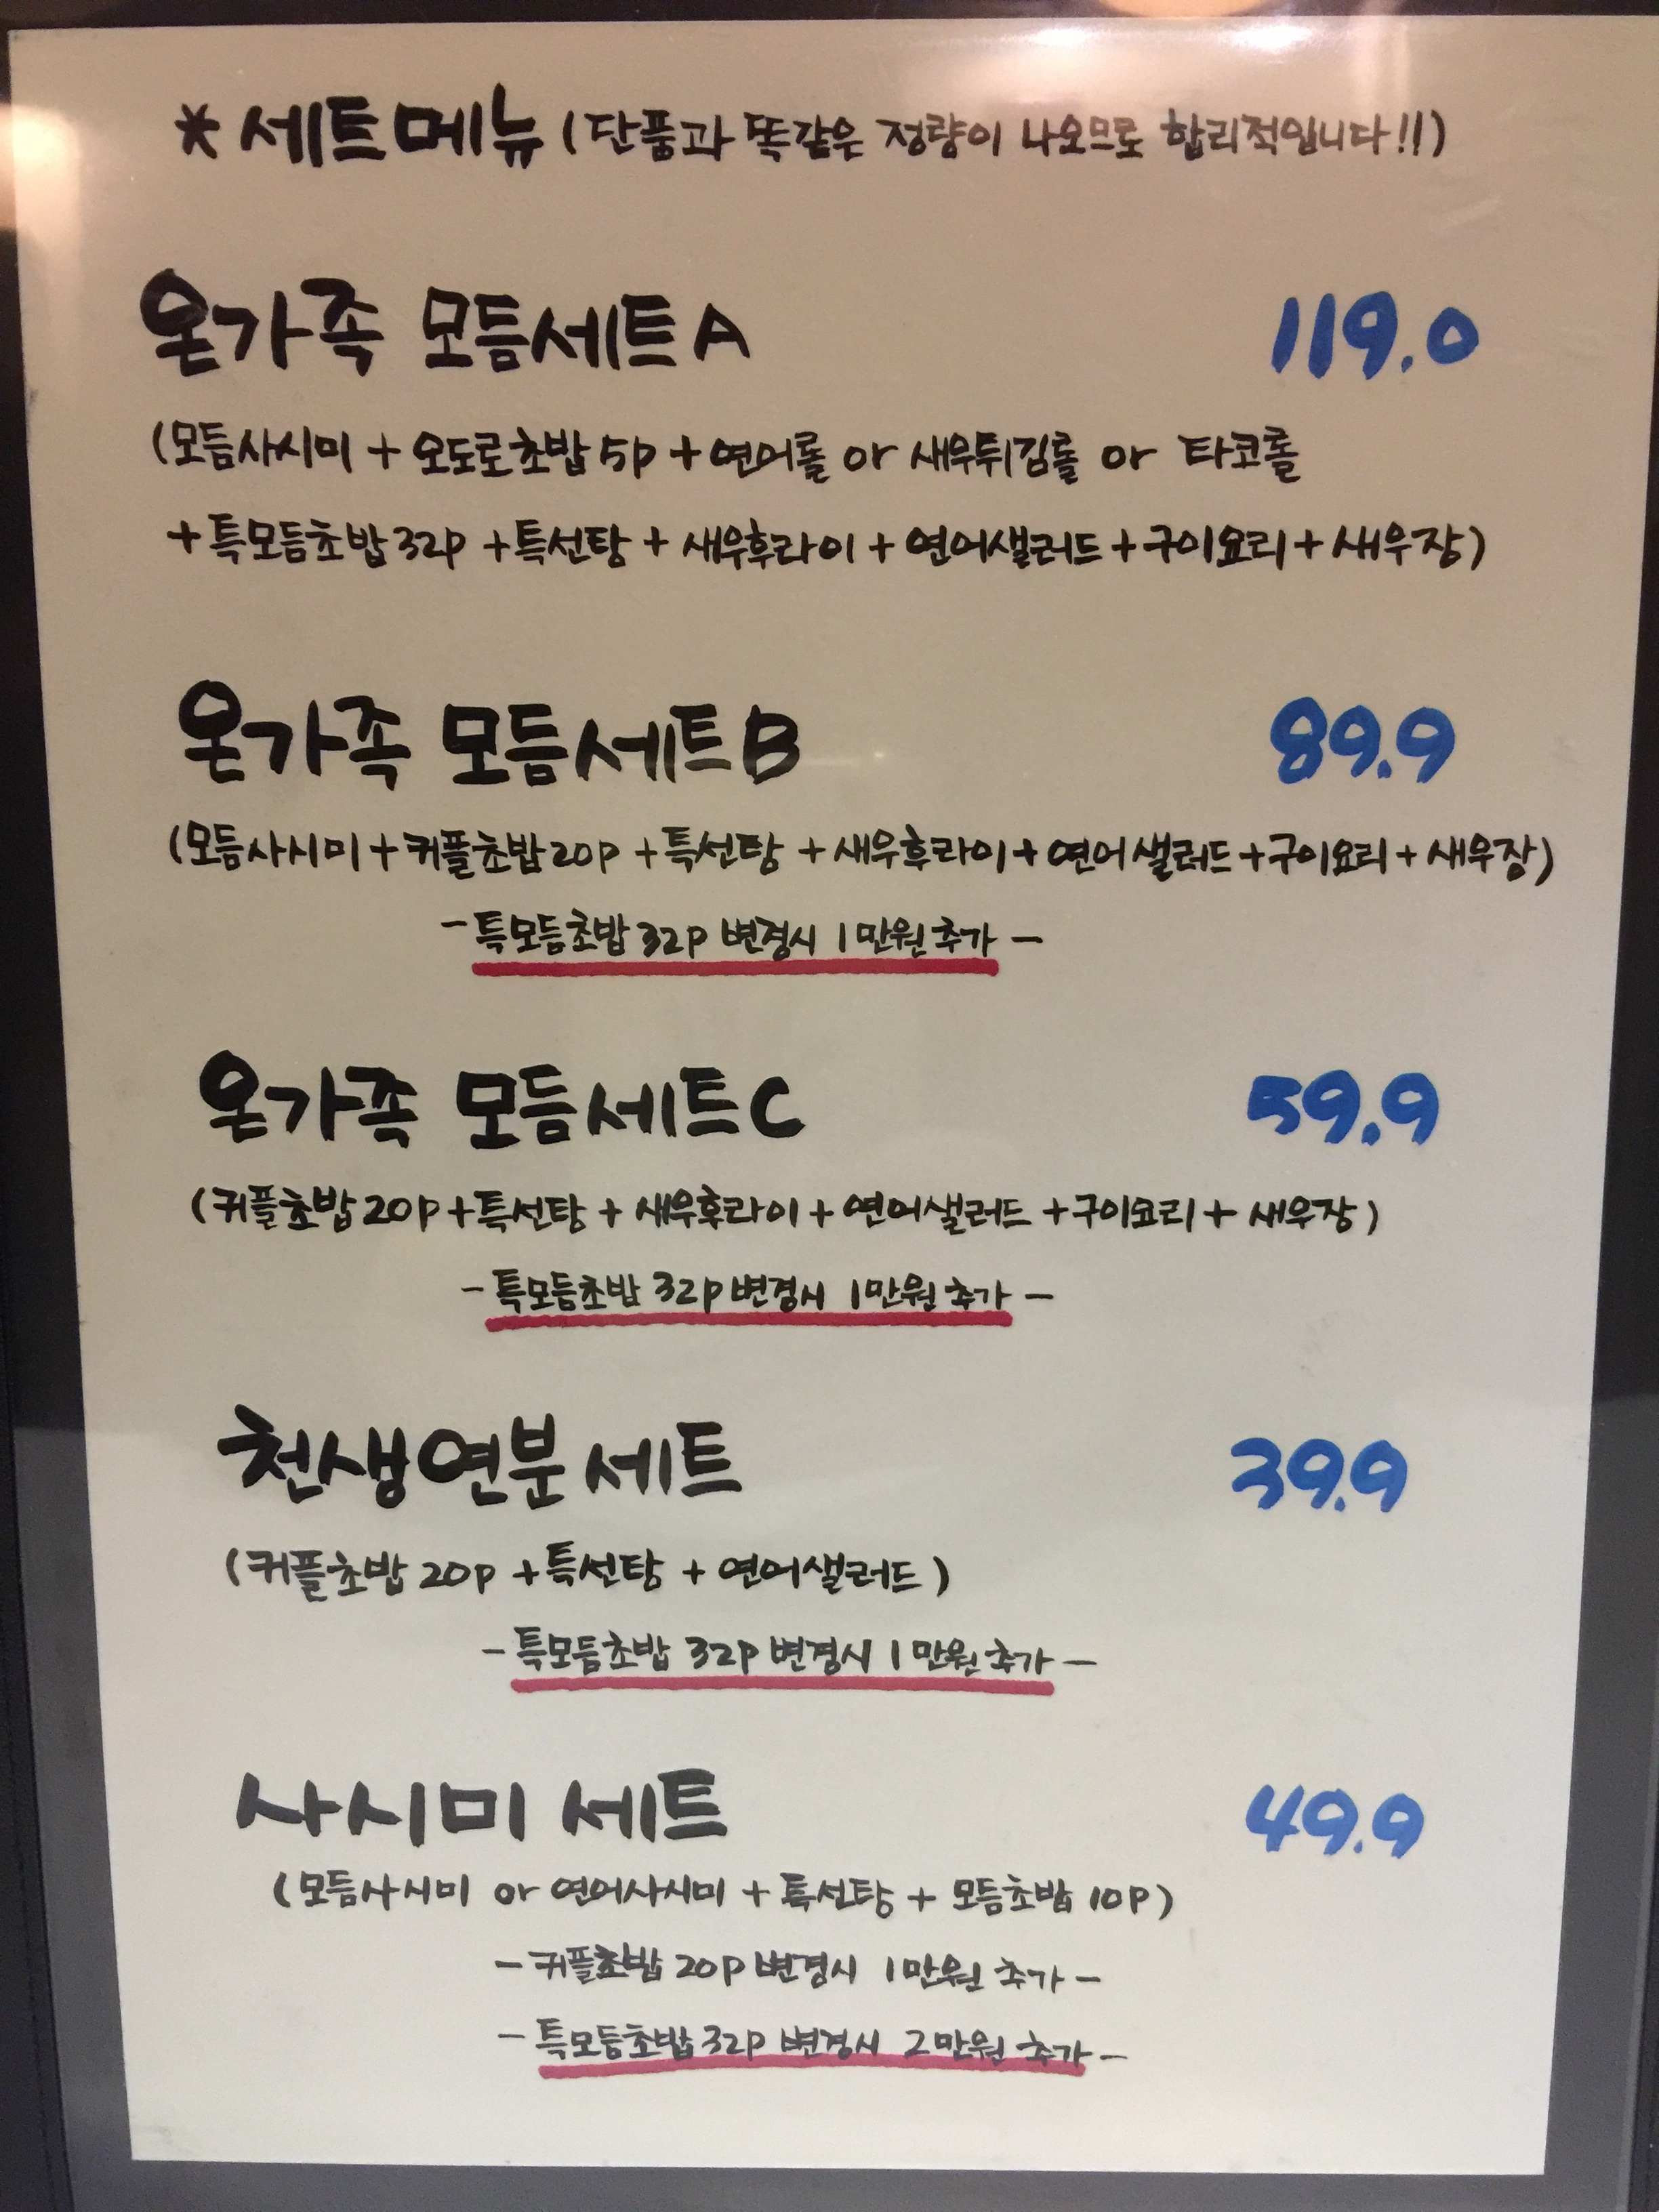 * 세트메뉴 (단품과 똑같은 정량이 나오므로 합리적입니다!!)
온가족 모듬세트A 119.0
(모듬사시미 + 오도로초밥 5p + 연어롤 or 새우튀김롤 or 타코롤
+ 특모듬초밥 32p + 특선탕 + 새우후라이 + 연어샐러드 + 구이요리 + 새우장)
온가족 모듬세트B 89.9
(모듬사시미 + 커플초밥 20p + 특선탕 + 새우후라이 + 연어샐러드 + 구이요리 + 새우장)
- 특모듬초밥 32p 변경시 1만원 추가 -
온가족 모듬세트C 59.9
(커플초밥 20p + 특선탕 + 새우후라이 + 연어샐러드 + 구이요리 + 새우장)
- 특모듬초밥 32p 변경시 1만원 추가 -
천생연분 세트 39.9
(커플초밥 20p + 특선탕 + 연어샐러드)
- 특모듬초밥 32p 변경시 1만원 추가 -
사시미 세트 49.9
(모듬사시미 or 연어사시미 + 특선탕 + 모듬초밥 10p)
- 커플초밥 20p 변경시 1만원 추가 -
- 특모듬초밥 32p 변경시 2만원 추가 -